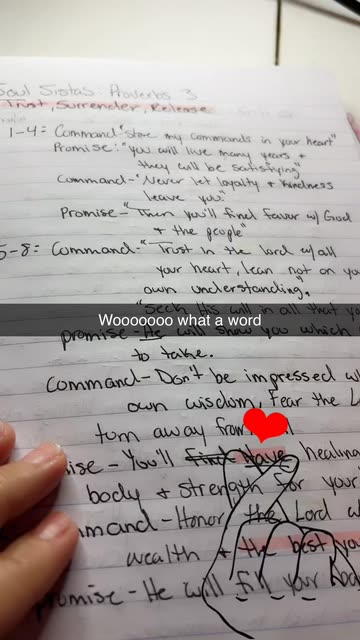 Soul Sistas: Proverbs 3
Trust, Surrender, Release
1-4: Command "store my commands in your heart"
Promise: "you will live many years &
they will be satisfying"
Command - "Never let loyalty & kindness
leave you."
Promise - "Then you'll find favor w/ God
& the people"
5-8: Command - "Trust in the lord w/ all
your heart, lean not on yo
own understanding."
"Seek His will in all that yo
Wooooooo what a word
promise - He will show you which
to take.
Command - Don't be impressed w
own wisdom, Fear the L
turn away from
ise - You'll find have healing
body & strength for your
mmand - Honor the Lord w
wealth & the best
promise - He will fill your